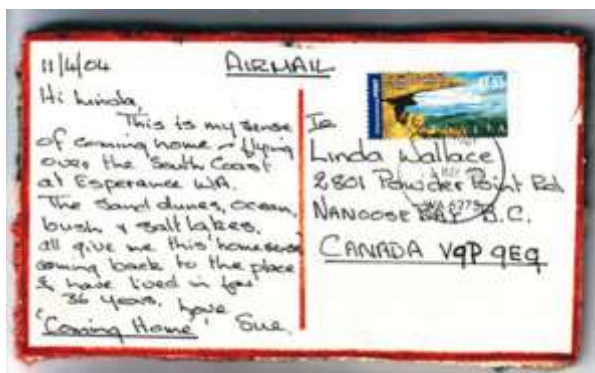 11/4/04
AIRMAIL
Hi Linda,
This is my sense
of coming home - flying
over the South Coast
at Esperance WA.
The sand dunes, ocean,
bush & salt lakes,
all give me this homesense
coming back to the place
I have lived in for
36 years. Love
'Coming Home' Sue
To
Linda Wallace
2801 Powder Point Rd
NANOOSE BAY B.C.
CANADA V9P 9E9